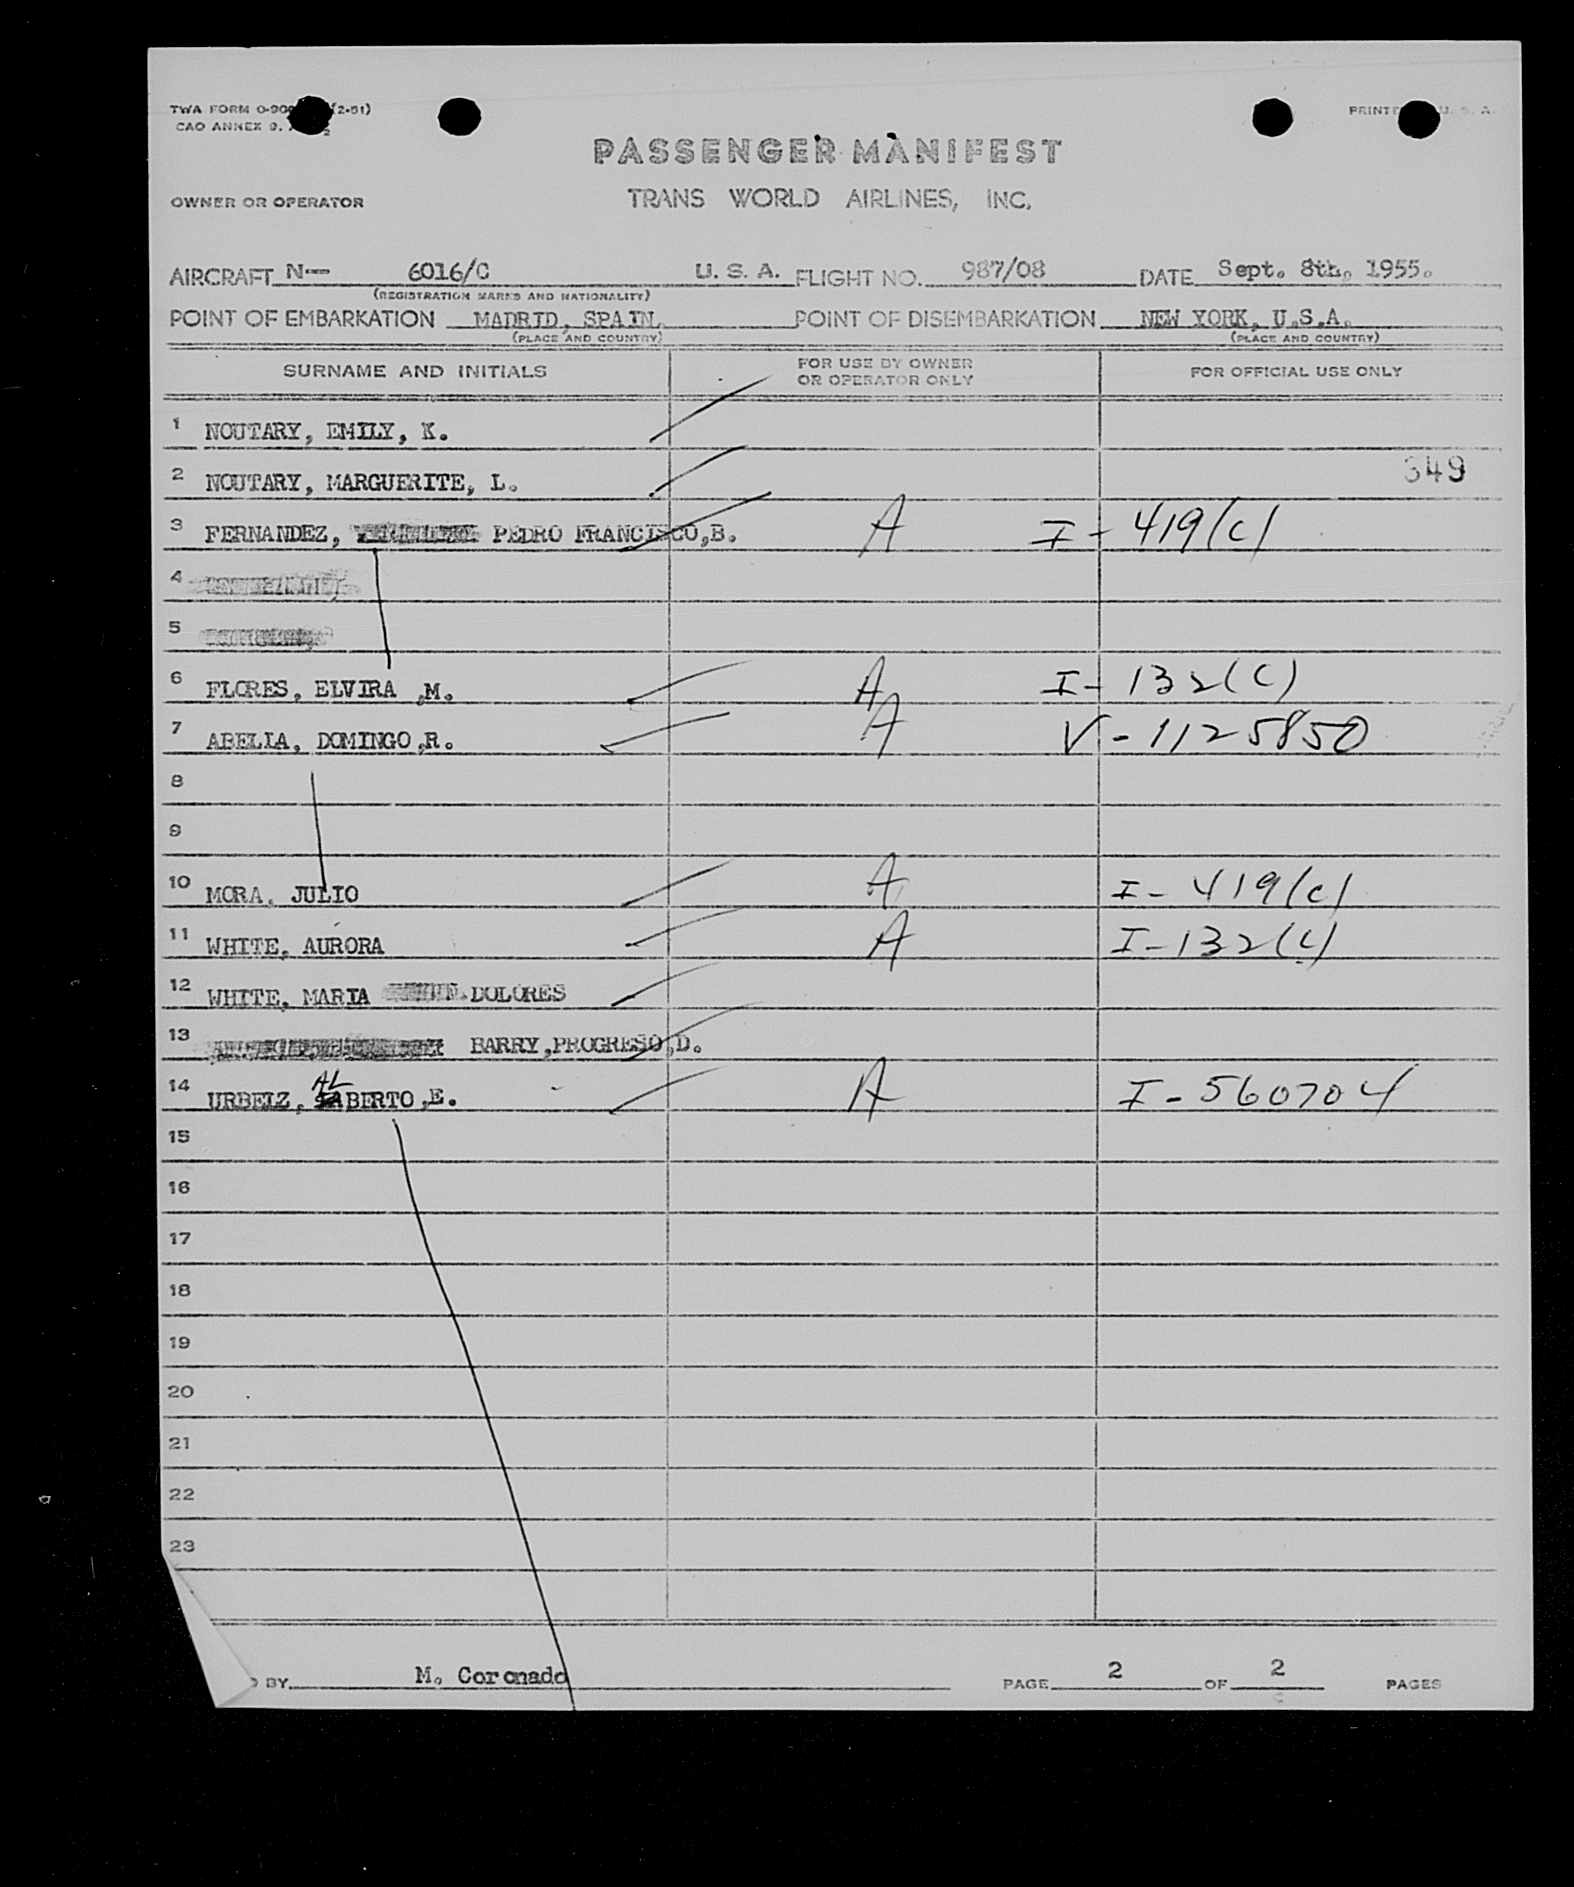 TWA FORM O-90 (2-51)
CAO ANNEX 9. 2
PRINTE U. S. A.
PASSENGER MANIFEST
OWNER OR OPERATOR TRANS WORLD AIRLINES, INC.
AIRCRAFT N-- 6016/C U. S. A. FLIGHT NO. 987/08 DATE Sept. 8th, 1955.
(REGISTRATION MARKS AND NATIONALITY)
POINT OF EMBARKATION MADRID, SPAIN. POINT OF DISEMBARKATION NEW YORK, U.S.A.
(PLACE AND COUNTRY) (PLACE AND COUNTRY)
SURNAME AND INITIALS FOR USE BY OWNER OR OPERATOR ONLY FOR OFFICIAL USE ONLY
1 NOUTARY, EMILY, K.
2 NOUTARY, MARGUERITE, L. 349
3 FERNANDEZ, PEDRO FRANCISCO,B. A I - 419(C)
4
5
6 FLORES, ELVIRA ,M. A I - 132(C)
7 ABELLA, DOMINGO ,R. A V - 1125850
8
9
10 MORA, JULIO A I - 419(C)
11 WHITE, AURORA A I - 132(C)
12 WHITE, MARIA DOLORES
13 BARRY,PROGRESO,D.
14 URBEIZ, ALBERTO ,E. A I - 560704
15
16
17
18
19
20
21
22
23
BY M. Coronado PAGE 2 OF 2 PAGES